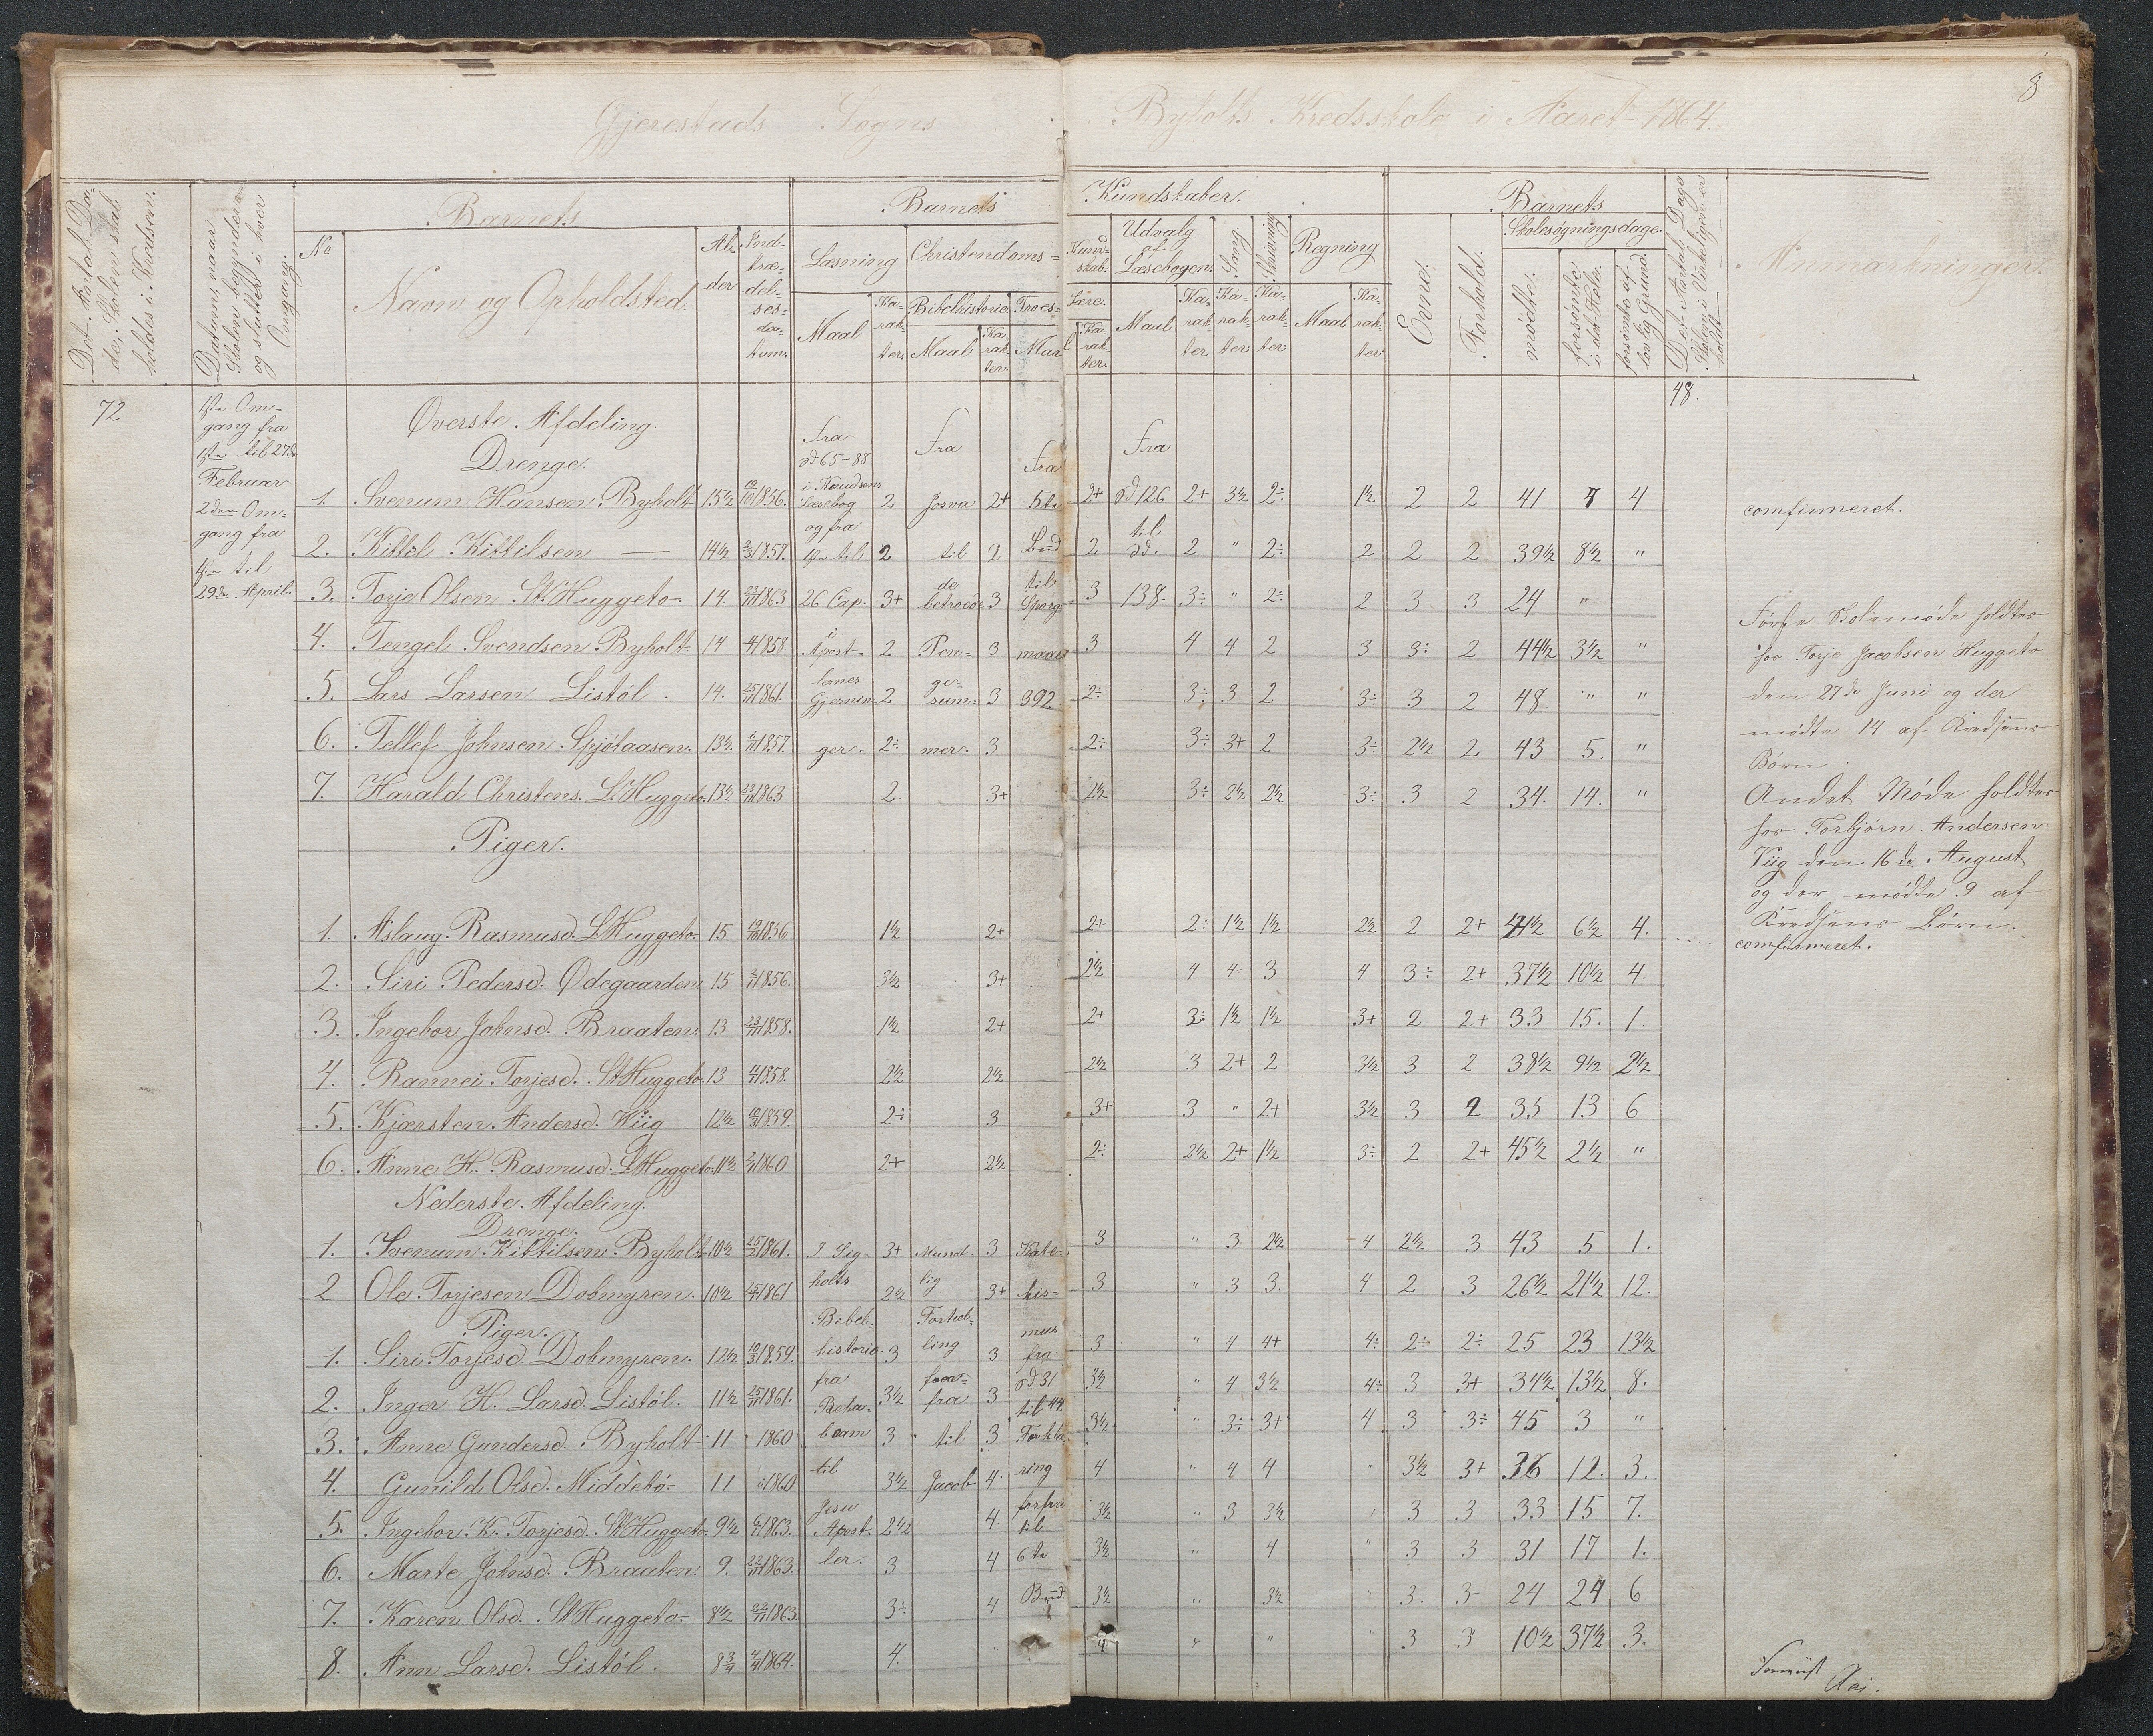 8
Gjerestads Sogns Byholts Kredsskole i Aaret 1864.
Det Antal Dage, Skolen skal holdes i Kredsen.
Datum, naar Skolen begynder og slutter i hver Omgang.
Barnets
No
Navn og Opholdsted
Alder
Indtrædelsesdatum
Barnets Kundskaber.
Læsning
Maal
Karakter
Christendoms= Kundskab.
Bibelhistorie
Maal
Karakter
Troes= Lære.
Maal
Karakter
Udvalg af Læsebogen.
Maal
Karakter
Sang.
Karakter
Skrivning
Karakter
Regning
Maal
Karakter
Barnets
Evne.
Forhold.
Skolesøgningsdage.
mødte.
forsømte i det Hele.
forsømte af lovlig Grund.
Det Antal Dage Skolen i Virkeligheden er holdt
Anmærkninger.
72
1ste Om-
gang fra
1ste til 27de
Februar
2den Om-
gang fra
4de til
29de April.
48.
Øverste Afdeling.
Drenge.
1. Svenum Hansen Byholt 15½ 1856. 2 2+ 2+ 2+ 3½ 2÷ 1½ 2 2 41 7 4
2. Kittil Kittilsen — 14½ 1857. 2 2 2 2 " 2÷ 2 2 2 39½ 8½ "
3. Torje Olsen St. Huggeto 14. 1863 3+ 3 3 3÷ " 2÷ 2 3 3 24 "
4. Tengel Svendsen Byholt 14 1858. 2 3 3 4 4 2 3 3÷ 2 44½ 3½ "
5. Lars Larsen Listöl. 14. 1861. 2 3 2÷ 3÷ 3 2 3÷ 3 2 48. " "
6. Tellef Johnsen Spjötaasen. 13½ 1857. 2÷ 3 2÷ 3÷ 3+ 2 3÷ 2½ 2 43 5. "
7. Harald Christens. L. Huggeto. 13½ 1863 2. 3+ 2½ 3÷ 2½ 2½ 3÷ 3 2 34. 14. "
fra
§65-88
i Knudsens
Læsebog
og fra
1ste til
26 Cap. i
Apost-
lenes
Gjernin-
ger.
fra
Josva
til
de
betroede
Pen-
ge-
sum-
mer.
fra
5te
Bud
til
Spørgs-
maal
392
fra
§126
til
§.
138.
Piger.
1. Aslaug Rasmusd. L. Huggeto. 15 1856 1½ 2+ 2+ 2÷ 1½ 1½ 2½ 2 2+ 41½ 6½ 4.
2. Siri Pedersd. Ödegaarden 15 1856. 3½ 3+ 2½ 4 4 3 4 3÷ 2+ 37½ 10½ 4.
3. Ingebor Johnsd. Braaten. 13 1858. 1½ 2+ 2+ 3÷ 1½ 1½ 3+ 2 2+ 33 15. 1.
4. Rannei Torjesd. St. Huggeto 13 1858. 2½ 2½ 2½ 3 2+ 2 3½ 3 2 38½ 9½ 2½
5. Kjærsten Andersd. Wiig 12½ 1859. 2÷ 3 3+ 3 " 2+ 3½ 3 2 35 13 6
6. Anne H. Rasmusd. L. Huggeto. 11½ 1860 2+ 2½ 2÷ 2½ 2+ 1½ 3÷ 2 2+ 45½ 2½ "
Nederste Afdeling.
Drenge.
1. Svenum Kittilsen Byholt 10½ 1861. 3+ 3 3 " 3 2½ 4 2½ 3 43 5 1.
2 Ole Torjesen Dobmyren. 10½ 1861 2½ 3+ 3 " 3 3. 4 2 3 26½ 21½ 12.
Piger.
1. Siri Torjesd. Dobmyren. 12½ 1859. 3 3 3 " 4 4+ 4÷ 2÷ 2÷ 25 23 13½
2. Inger H. Larsd. Listöl. 11½ 1861. 3½ 3 3½ " 4 3½ 4÷ 3 3+ 34½ 13½ 8.
3. Anne Gundersd. Byholt 11 1860 3 3 3½ " 3÷ 3+ 4 3 3÷ 45 3 "
4. Gunild Olsd. Middebö 11 1860 3½ 4. 4 " 4 4 " 3½ 3+ 36 12. 3.
5. Ingebor K. Torjesd. St. Huggeto 9½ 1863. 2½ 4 3½ " 3 3½ " 3 3 33 15 7.
6. Marte Johnsd. Braaten. 9. 1863. 3 4 3½ " 4 " 3 3 31 17 1.
7. Karen Olsd. St. Huggeto 8½ 1863. 3÷ 4 3½ " 3½ " 3. 3 24 24 6
8. Ann Larsd. Listöl. 8¾ 1864. 4. " 4 " " " 3 3 10½ 37½ 3.
I Sig-
holts
Bibel-
historie
fra
Rota-
beam
til
Jesu
Apost-
ler.
Mundt-
lig
Fortæl-
ling
fra
til
Jacob
Kate-
kis-
mus
fra
§31
til 44.
Forkla-
ring
forfra
til
6te
Bud.
comfirmeret.
Første Skolemøde holdtes
hos Torje Jacobsen Huggeto
den 27de Juni og der
mødte 14 af Kredsens
Børn.
Andet Møde holdtes
hos Torbjörn Andersen
Viig den 16de August
og der mødte 9 af
Kredsens Børn.
comfirmeret.